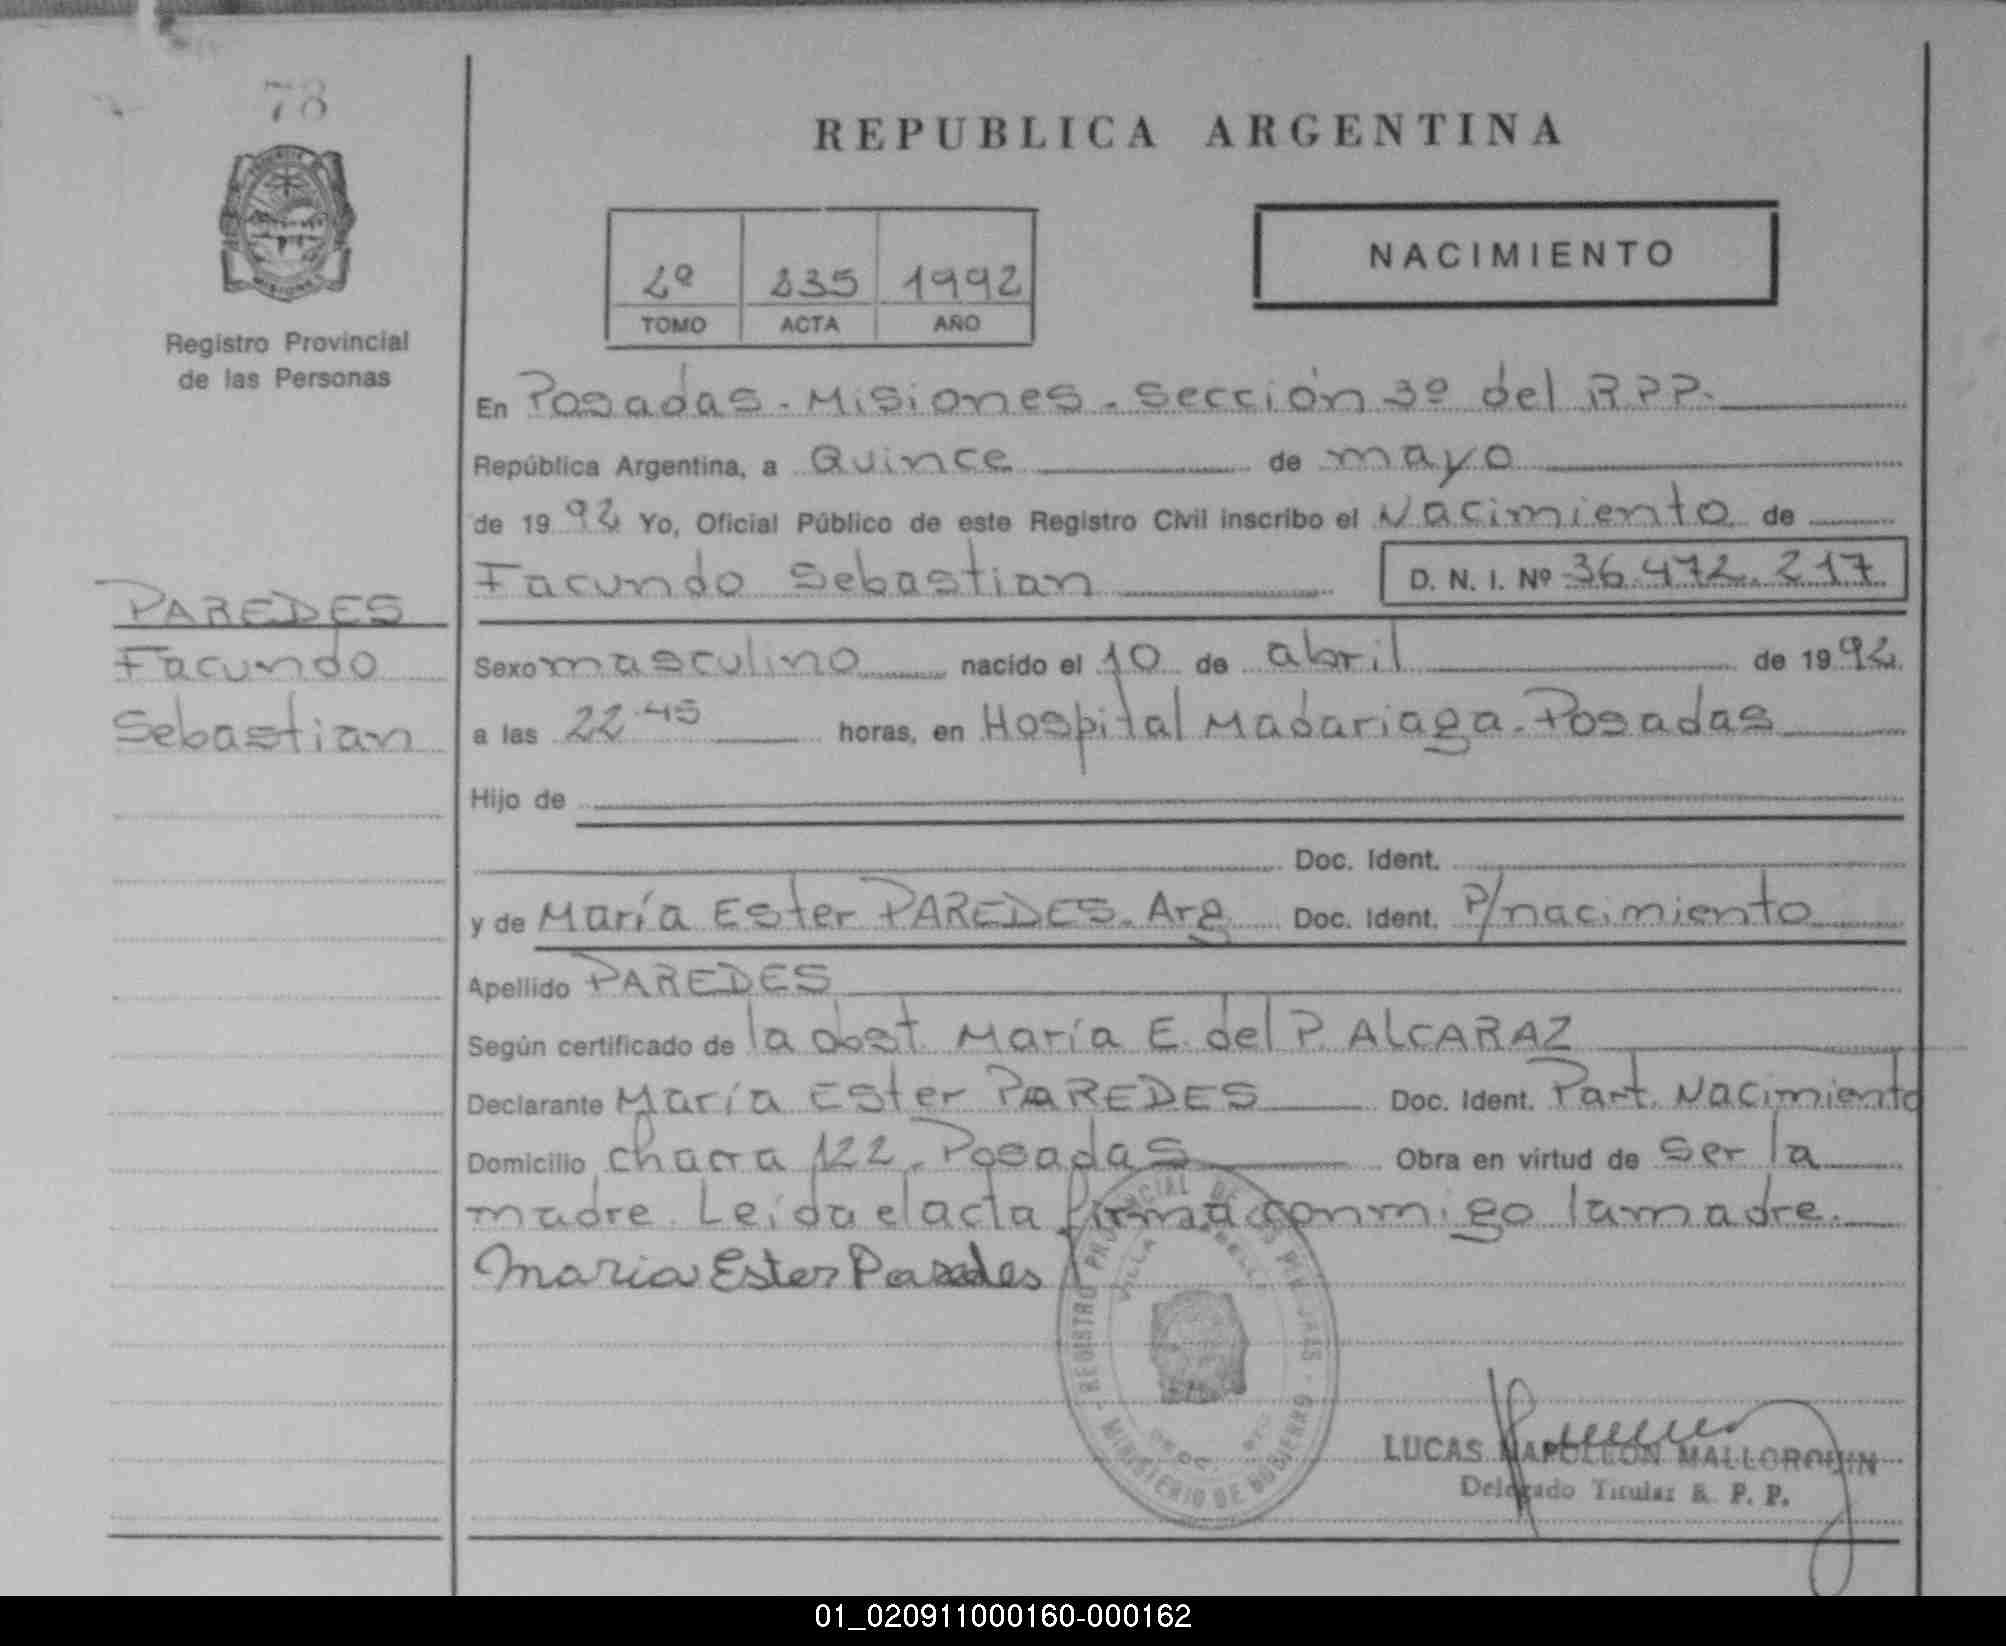 78
REPUBLICA ARGENTINA
NACIMIENTO
2º 235 1992
TOMO ACTA AÑO
Registro Provincial
de las Personas
En Posadas - Misiones - Sección 3º del RPP.
República Argentina, a Quince de mayo
de 1992 Yo, Oficial Público de este Registro Civil inscribo el Nacimiento de
Facundo Sebastian D. N. I. Nº 36.472.217
PAREDES
Facundo
Sebastian
Sexo masculino nacido el 10 de abril de 1992
a las 22.45 horas, en Hospital Madariaga - Posadas
Hijo de
Doc. Ident.
y de María Ester PAREDES - Arg Doc. Ident. P/nacimiento
Apellido PAREDES
Según certificado de la obst. María E. del P. ALCARAZ
Declarante María Ester PAREDES Doc. Ident. Part. Nacimiento
Domicilio chacra 122 - Posadas Obra en virtud de ser la
madre. Leída el acta firma conmigo la madre.
Maria Ester Paredes
REGISTRO PROVINCIAL DE LAS PERSONAS - MINISTERIO DE GOBIERNO
VILLA
LUCAS NAPOLEON MALLORQUIN
Delegado Titular R. P. P.
01_020911000160-000162